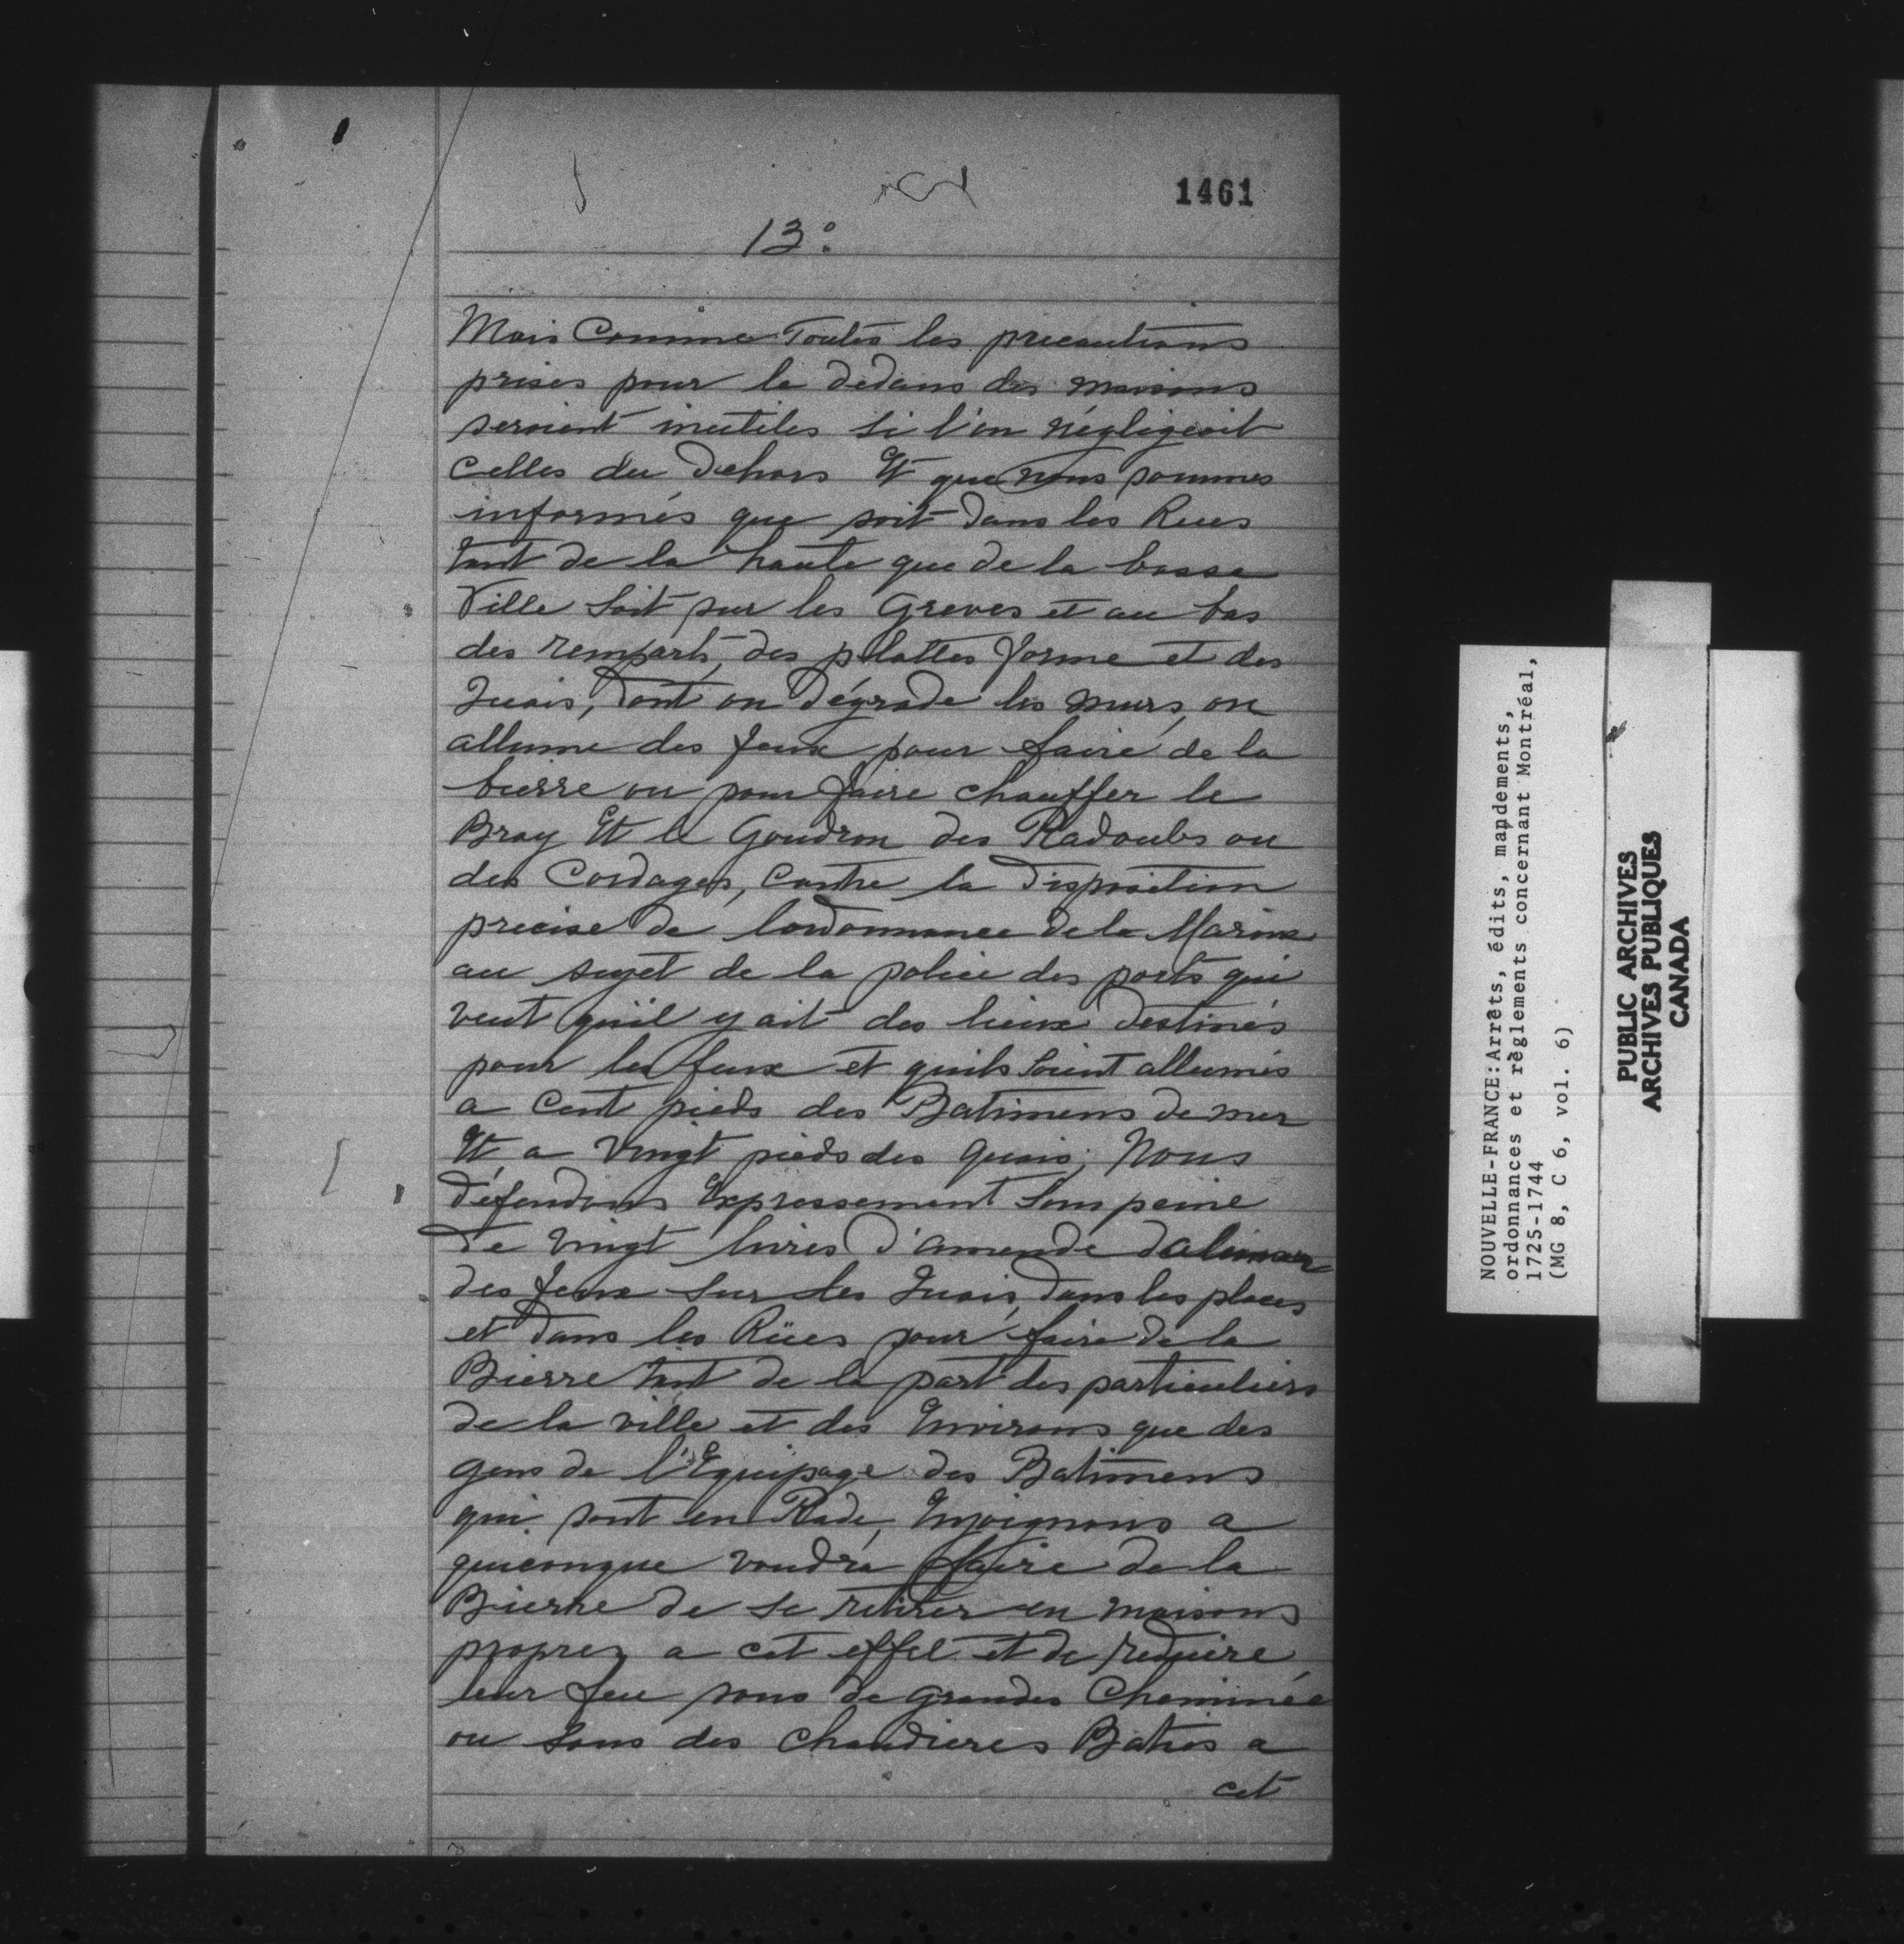 1461
13°
Mais Comme Toutes les precautions
prises pour le dedans des maisons
seroient inutiles si l'on négligeoit
Celles du dehors Et que nous sommes
informés que soit dans les Rues
tant de la haute que de la basse
Ville Soit sur les Greves et au bas
des remparts, des plattes forme et des
Quais, dont on dégrade les murs, on
allume des feux pour faire de la
bierre ou pour faire chauffer le
Bray Et le Goudron des Radoubs ou
des Cordages, Contre la disposition
precise de lordonnance de la Marine
au sujet de la police des ports qui
veut qu'il y ait des lieux destinés
pour les feux et quils soient allumés
a Cent pieds des Batimens de mer
Et a Vingt pieds des quais; Nous
défendons Expressement Sous peine
de vingt livres d'amende dalumer
des feux Sur les Quais, dans les places
et dans les Rües pour faire de la
Bierre tant de la part des particuliers
de la ville et des Environs que des
gens de l'Equipage des Batimens
qui sont en Rade, Enjoignons a
quiconque voudra faire de la
Bierre de se retirer en maisons
propres a cet effet et de reduire
leur feu sous de grandes Cheminée
ou sous des chaudieres Baties a
cet
NOUVELLE-FRANCE: Arrêts, édits, mandements,
ordonnances et règlements concernant Montréal,
1725-1744
(MG 8, C 6, vol. 6)
PUBLIC ARCHIVES
ARCHIVES PUBLIQUES
CANADA